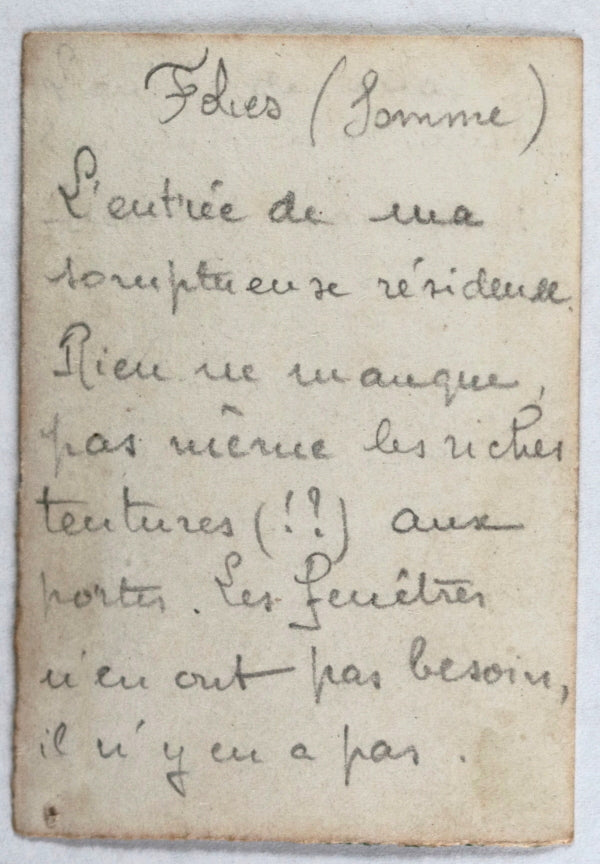 Folies (Somme)
L'entrée de ma
somptueuse résidence.
Rien ne manque,
pas même les riches
tentures (!?) aux
portes. Les fenêtres
n'en ont pas besoin,
il n'y en a pas.